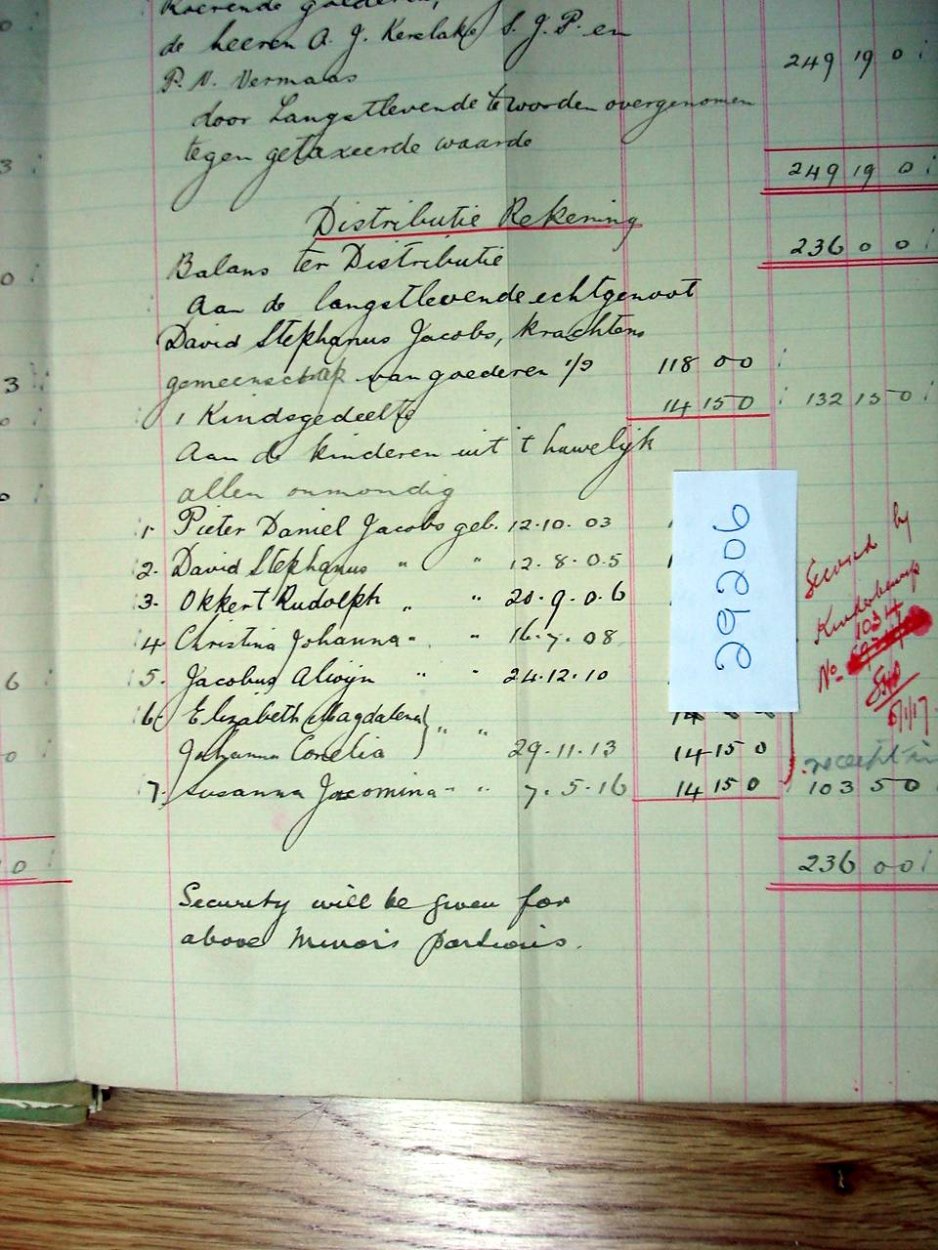 Roerende goederen,
de heeren A. J. Kerslake S. J. P. en
P. V. Vermaas 249 19 0
door Langstlevende te worden overgenomen
tegen getaxeerde waarde
249 19 0
Distributie Rekening
Balans ter Distributie 236 0 0
Aan de langstlevende echtgenoot
David Stephanus Jacobs, krachtens
gemeenschap van goederen 1/2 118 0 0
1 Kindsgedeelte 14 15 0 132 15 0
Aan de kinderen uit 't huwelijk
allen onmondig
1. Pieter Daniel Jacobs geb. 12.10.03
2. David Stephanus " " 12.8.05
3. Okkert Rudolph " " 20.9.06
4 Christina Johanna " " 16.7.08
5. Jacobus Alwijn " " 24.12.10
6. Elizabeth Magdalena } " "
Johanna Conelia 29.11.13 14 15 0
7. Susanna Jacomina " " 7.5.16 14 15 0 103 5 0
236 0 0
Security will be given for
above Minors portions.
29206
Secured by
Kinderbewys
No. 1034
5/1/17
receipt in